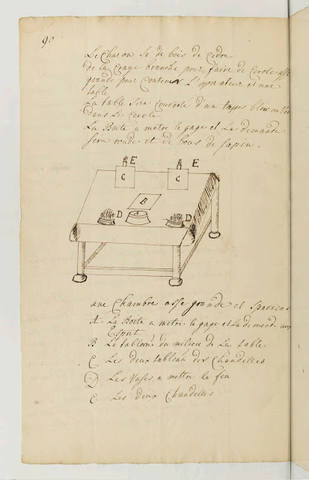 90
Le Charon se de bois de cedre
De la Craye benniste pour faire de Cercle asse
grande pour Contenir L'opperateur et une
table
La table Sera Couverte d'un tappis bleu
dans Le Cercle
La Boite a metre le page et La demande
sera ronde et de bois de sapin.
A E A E
C C
B
D D
une Chambre asse grande et Spacieus
A La Boite a metre le page et la demande
Esprit
B Le tableau du milieu de La table
C Les deux tableau des Chandelles
D Les Vases a mettre le feu
E Les deux Chandelles